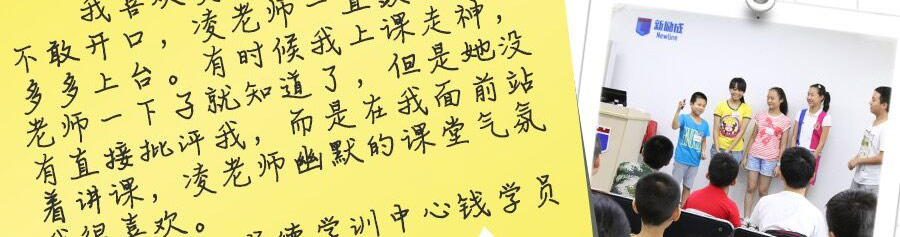 我喜欢
不敢开口,凌老师一直鼓
多多上台。有时候我上课走神,
老师一下子就知道了,但是她没
有直接批评我,而是在我面前站
着讲课,凌老师幽默的课堂气氛
我很喜欢。
德学训中心钱学员
新励成
Newline